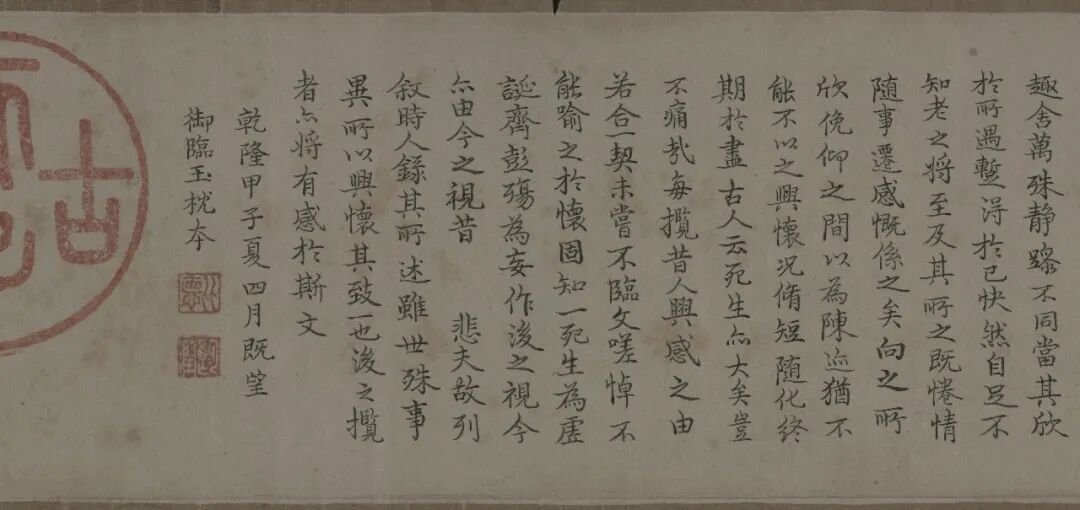 趣舍萬殊静躁不同當其欣
於所遇蹔得於己快然自足不
知老之将至及其所之既惓情
随事遷感慨係之矣向之所
欣俛仰之間以為陳迹猶不
能不以之興懷况脩短随化終
期於盡古人云死生亦大矣豈
不痛哉每攬昔人興感之由
若合一契未嘗不臨文嗟悼不
能喻之於懷固知一死生為虚
誕齊彭殤為妄作後之視今
亦由今之視昔 悲夫故列
敘時人録其所述雖世殊事
異所以興懷其致一也後之攬
者亦将有感於斯文
乾隆甲子夏四月既望
御臨玉枕本
古